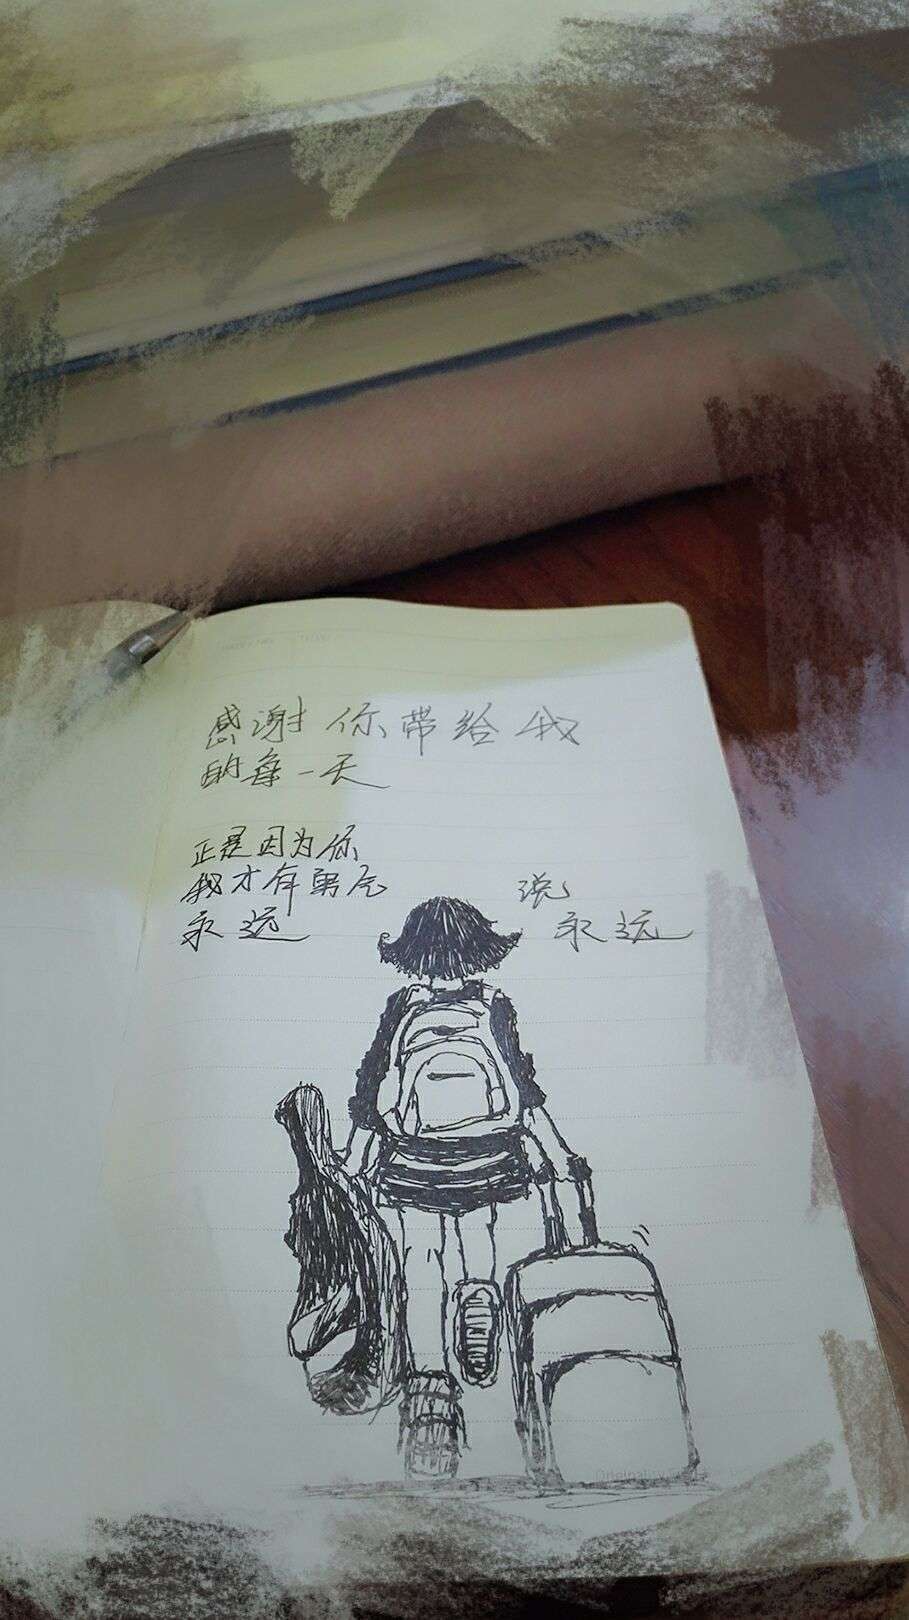 感谢你带给我
的每一天
正是因为你
我才有勇气
永远
说
永远